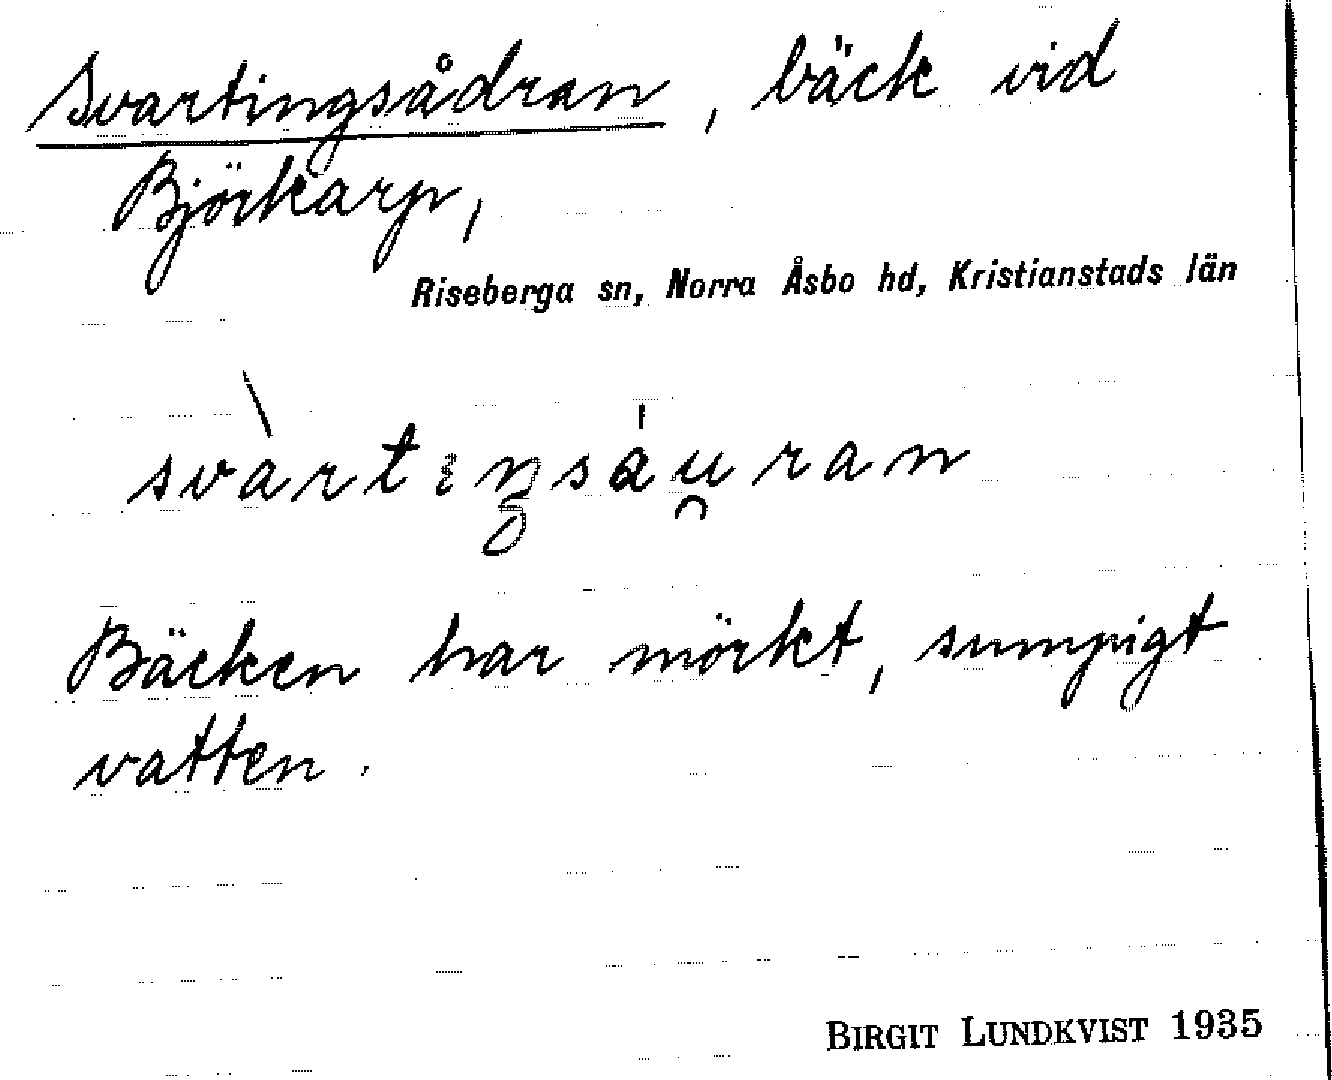 Svartingsådran, bäck vid
Björkarp,
Riseberga sn, Norra Åsbo hd, Kristianstads län
svàrtiŋsáu̯ran
Bäcken har mörkt, sumpigt
vatten.
BIRGIT LUNDKVIST 1935